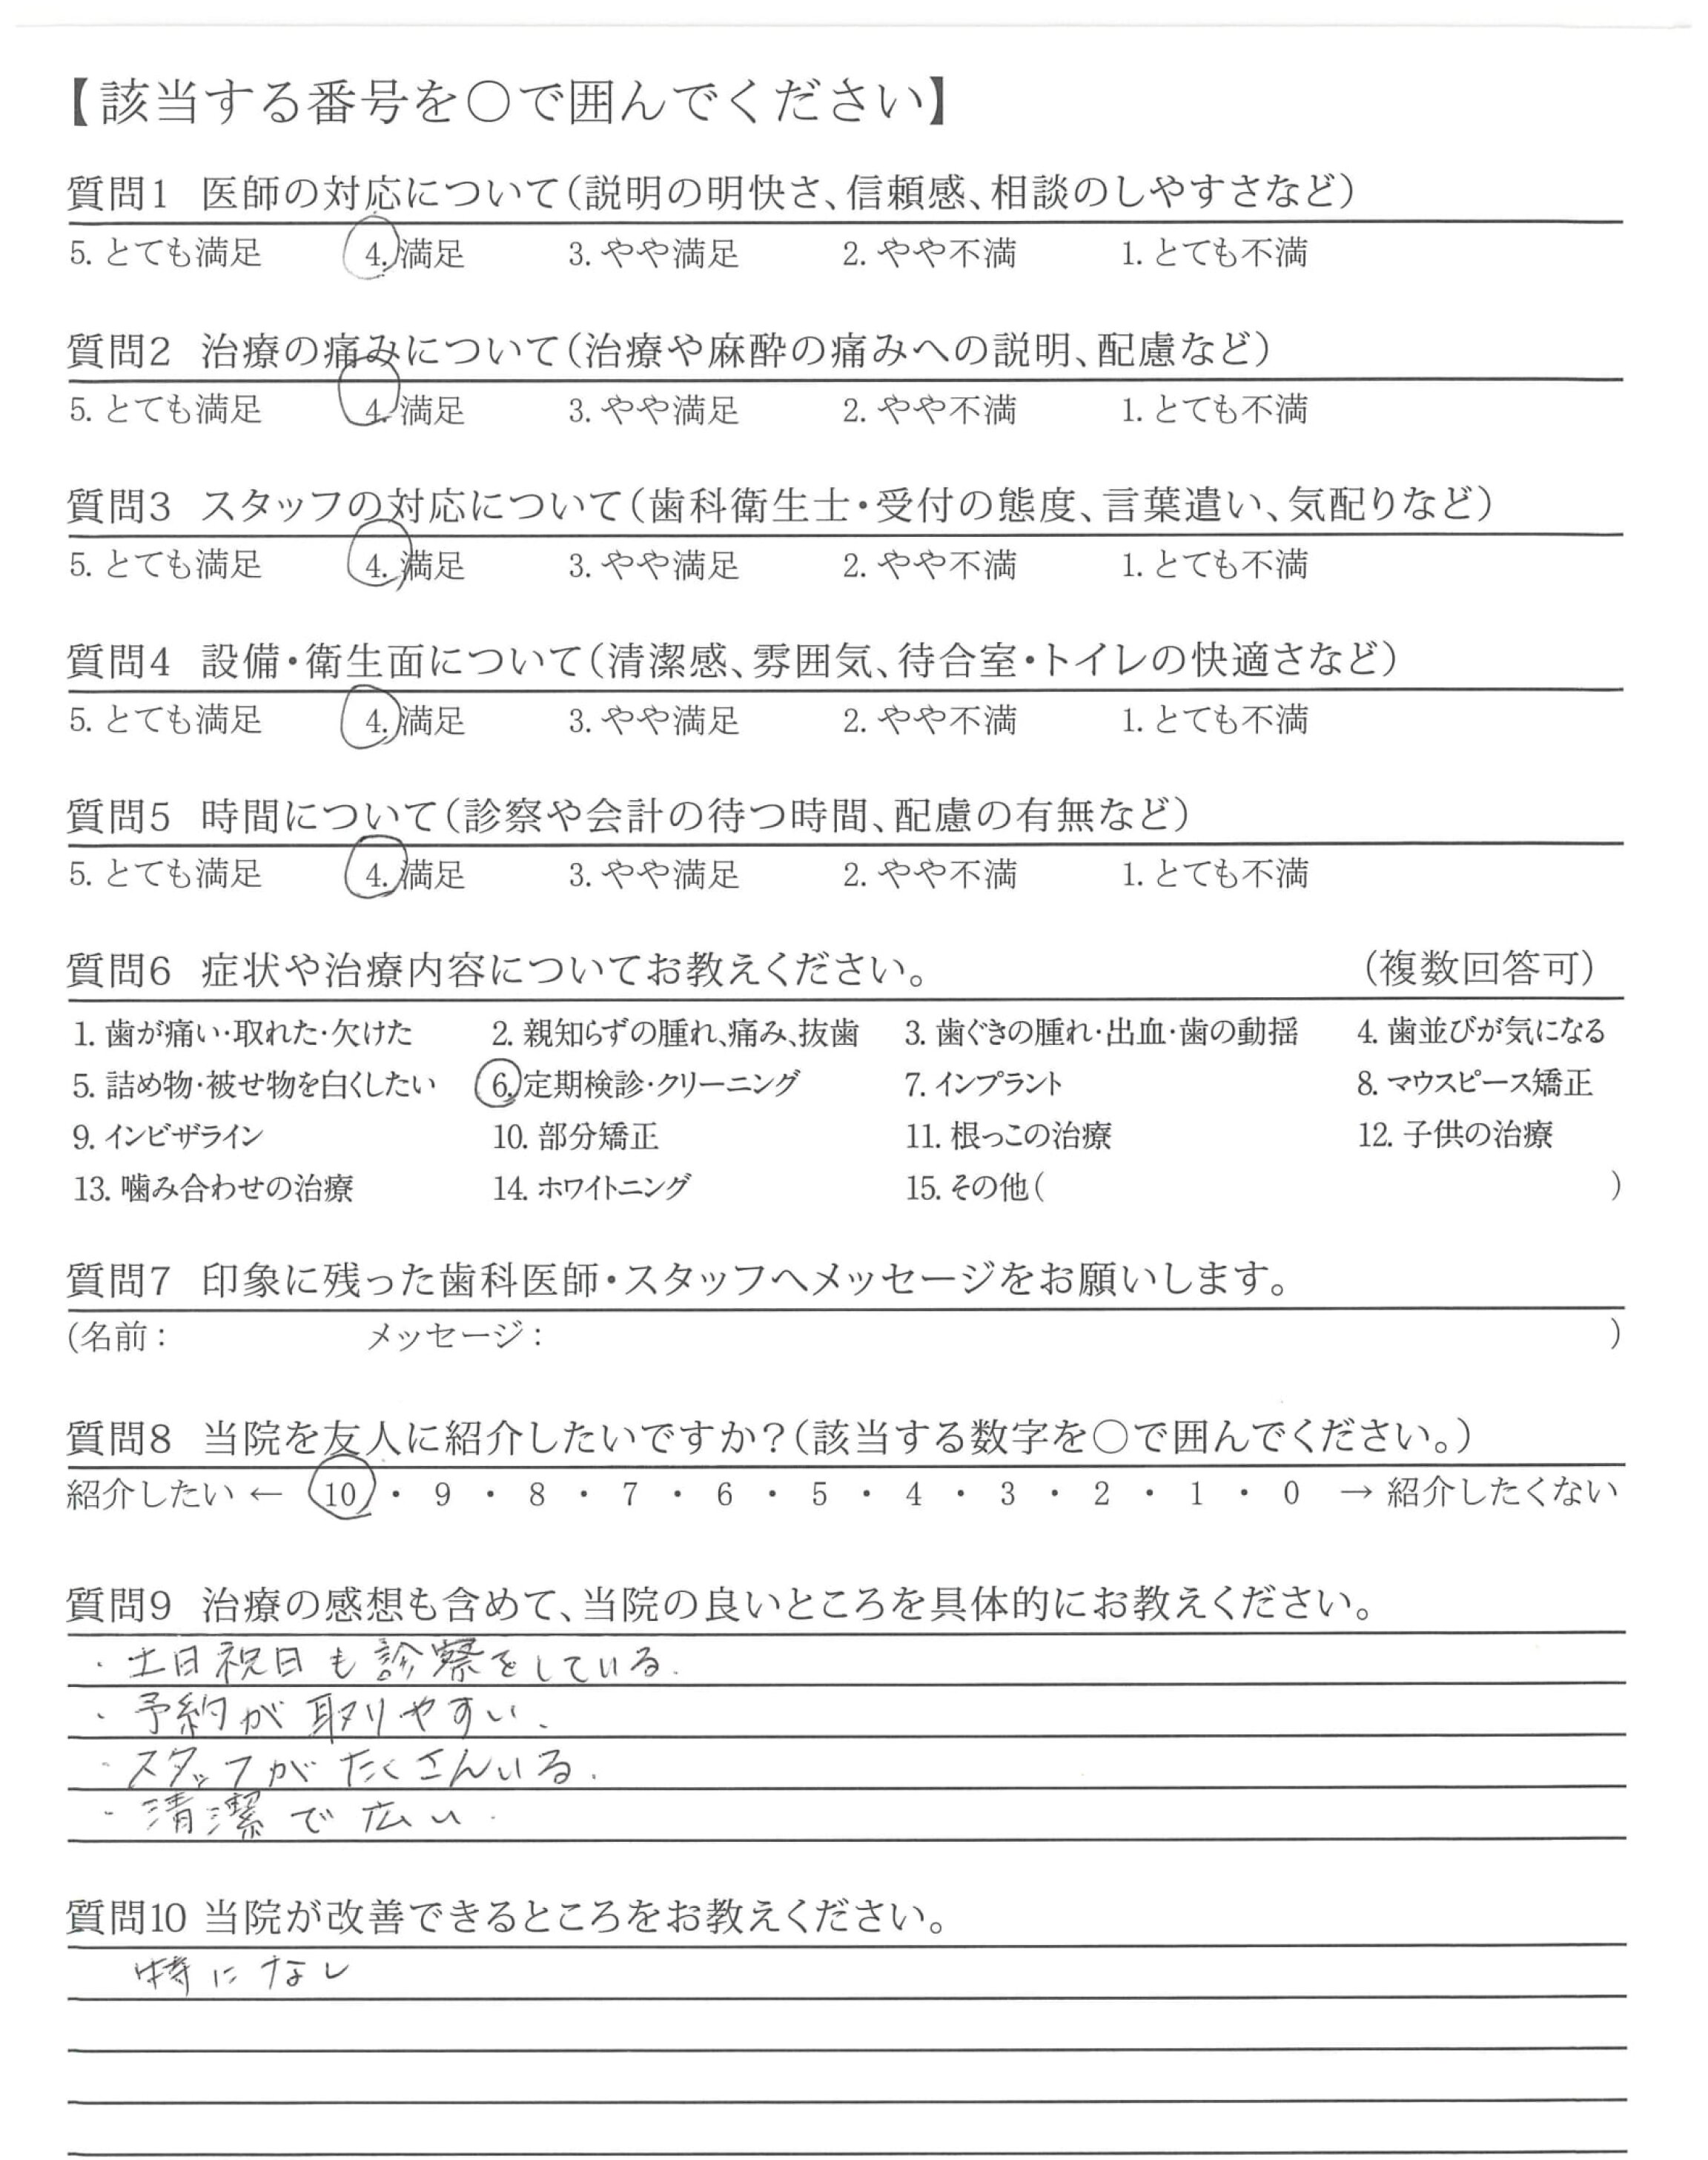 【該当する番号を〇で囲んでください】
質問1 医師の対応について(説明の明快さ、信頼感、相談のしやすさなど)
5. とても満足 4. 満足 3. やや満足 2. やや不満 1. とても不満
質問2 治療の痛みについて(治療や麻酔の痛みへの説明、配慮など)
5. とても満足 4. 満足 3. やや満足 2. やや不満 1. とても不満
質問3 スタッフの対応について(歯科衛生士・受付の態度、言葉遣い、気配りなど)
5. とても満足 4. 満足 3. やや満足 2. やや不満 1. とても不満
質問4 設備・衛生面について(清潔感、雰囲気、待合室・トイレの快適さなど)
5. とても満足 4. 満足 3. やや満足 2. やや不満 1. とても不満
質問5 時間について(診察や会計の待つ時間、配慮の有無など)
5. とても満足 4. 満足 3. やや満足 2. やや不満 1. とても不満
質問6 症状や治療内容についてお教えください。 (複数回答可)
1. 歯が痛い・取れた・欠けた 2. 親知らずの腫れ、痛み、抜歯 3. 歯ぐきの腫れ・出血・歯の動揺 4. 歯並びが気になる
5. 詰め物・被せ物を白くしたい 6. 定期検診・クリーニング 7. インプラント 8. マウスピース矯正
9. インビザライン 10. 部分矯正 11. 根っこの治療 12. 子供の治療
13. 噛み合わせの治療 14. ホワイトニング 15. その他( )
質問7 印象に残った歯科医師・スタッフへメッセージをお願いします。
(名前: メッセージ: )
質問8 当院を友人に紹介したいですか?(該当する数字を〇で囲んでください。)
紹介したい ← 10 ・ 9 ・ 8 ・ 7 ・ 6 ・ 5 ・ 4 ・ 3 ・ 2 ・ 1 ・ 0 → 紹介したくない
質問9 治療の感想も含めて、当院の良いところを具体的にお教えください。
・土日祝日も診察をしている.
・予約が取りやすい.
・スタッフがたくさんいる.
・清潔で広い.
質問10 当院が改善できるところをお教えください。
特になし